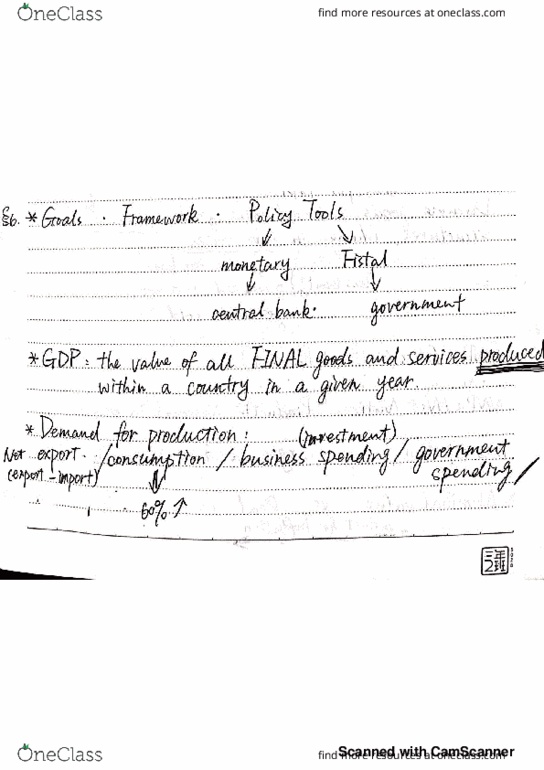 OneClass
find more resources at oneclass.com
§6. * Goals · Framework · Policy Tools
monetary Fistal
central bank. government
* GDP: the value of all FINAL goods and services produced
within a country in a given year.
* Demand for production: (investment)
Net export. /consumption / business spending / government
(export-import) spending /
60% ↑
OneClass
find more resources at oneclass.com
Scanned with CamScanner